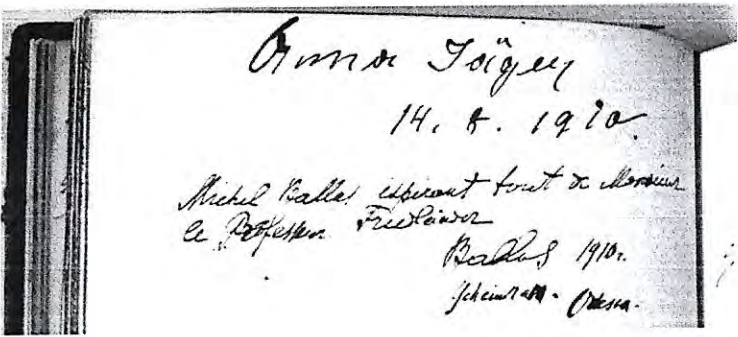 Anna Jäger
14. 8. 1910
Michel Ballas espérant tout de Monsieur
le Professeur Friedländer
Ballas 1910.
Odessa.